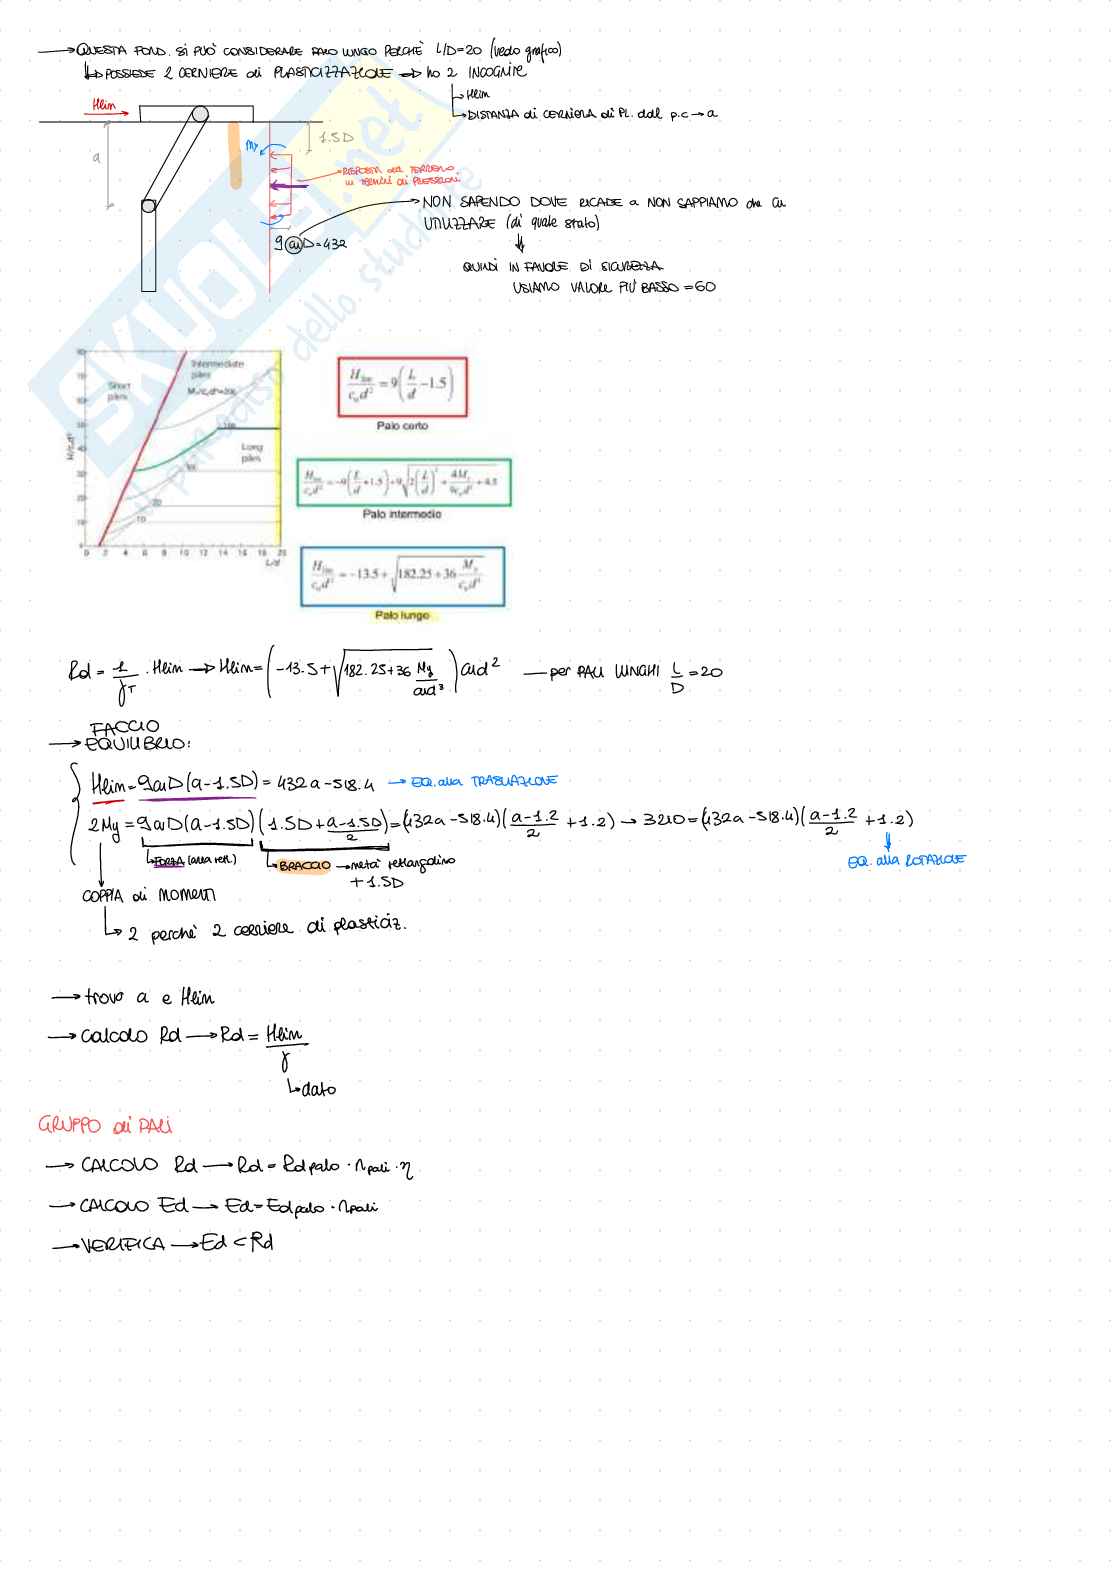 → QUESTA FOND. SI PUÒ CONSIDERARE PALO LUNGO PERCHÈ L/D=20 (vedo grafico)
↳ POSSIEDE 2 CERNIERE di PLASTICIZZAZIONE → ho 2 INCOGNITE
↳ Hlim
↳ DISTANZA di CERNIERA di PL. dal p.c → a
Hlim
a
1.5D
My
RISPOSTA del TERRENO
in termini di PRESSIONI
9cuD=432
→ NON SAPENDO DOVE RICADE a NON SAPPIAMO che cu
UTILIZZARE (di quale strato)
QUINDI IN FAVORE DI SICUREZZA
USIAMO VALORE PIÙ BASSO = 60
SKUOLA.net
il paradiso dello studente
Short piles
Intermediate piles
Long piles
L/d
0 2 4 6 8 10 12 14 16 18 20
H_lim/(c_u d²) = 9(L/d − 1.5)
Palo corto
H_lim/(c_u d²) = −9(L/d + 1.5) + 9√(2(L/d)² + 4M_y/(9c_u d³) + 4.5)
Palo intermedio
H_lim/(c_u d²) = −13.5 + √(182.25 + 36 M_y/(c_u d³))
Palo lungo
Rd = 1/γT · Hlim → Hlim = (−13.5 + √(182.25 + 36 My/cud³)) cud² — per PALI LUNGHI L/D = 20
FACCIO
→ EQUILIBRIO:
Hlim = 9cuD(a−1.5D) = 432a − 518.4 → EQ. alla TRASLAZIONE
2My = 9cuD(a−1.5D)(1.5D + (a−1.5D)/2) = (432a − 518.4)((a−1.2)/2 + 1.2) → 3210 = (432a − 518.4)((a−1.2)/2 + 1.2)
↳ FORZA (area rett.)
↳ BRACCIO → metà rettangolino
+ 1.5D
EQ. alla ROTAZIONE
COPPIA di MOMENTI
↳ 2 perchè 2 cerniere di plasticiz.
→ trovo a e Hlim
→ calcolo Rd → Rd = Hlim/γ
↳ dato
GRUPPO di PALI
→ CALCOLO Rd → Rd = Rdpalo · npali · η
→ CALCOLO Ed → Ed = Edpalo · npali
→ VERIFICA → Ed < Rd